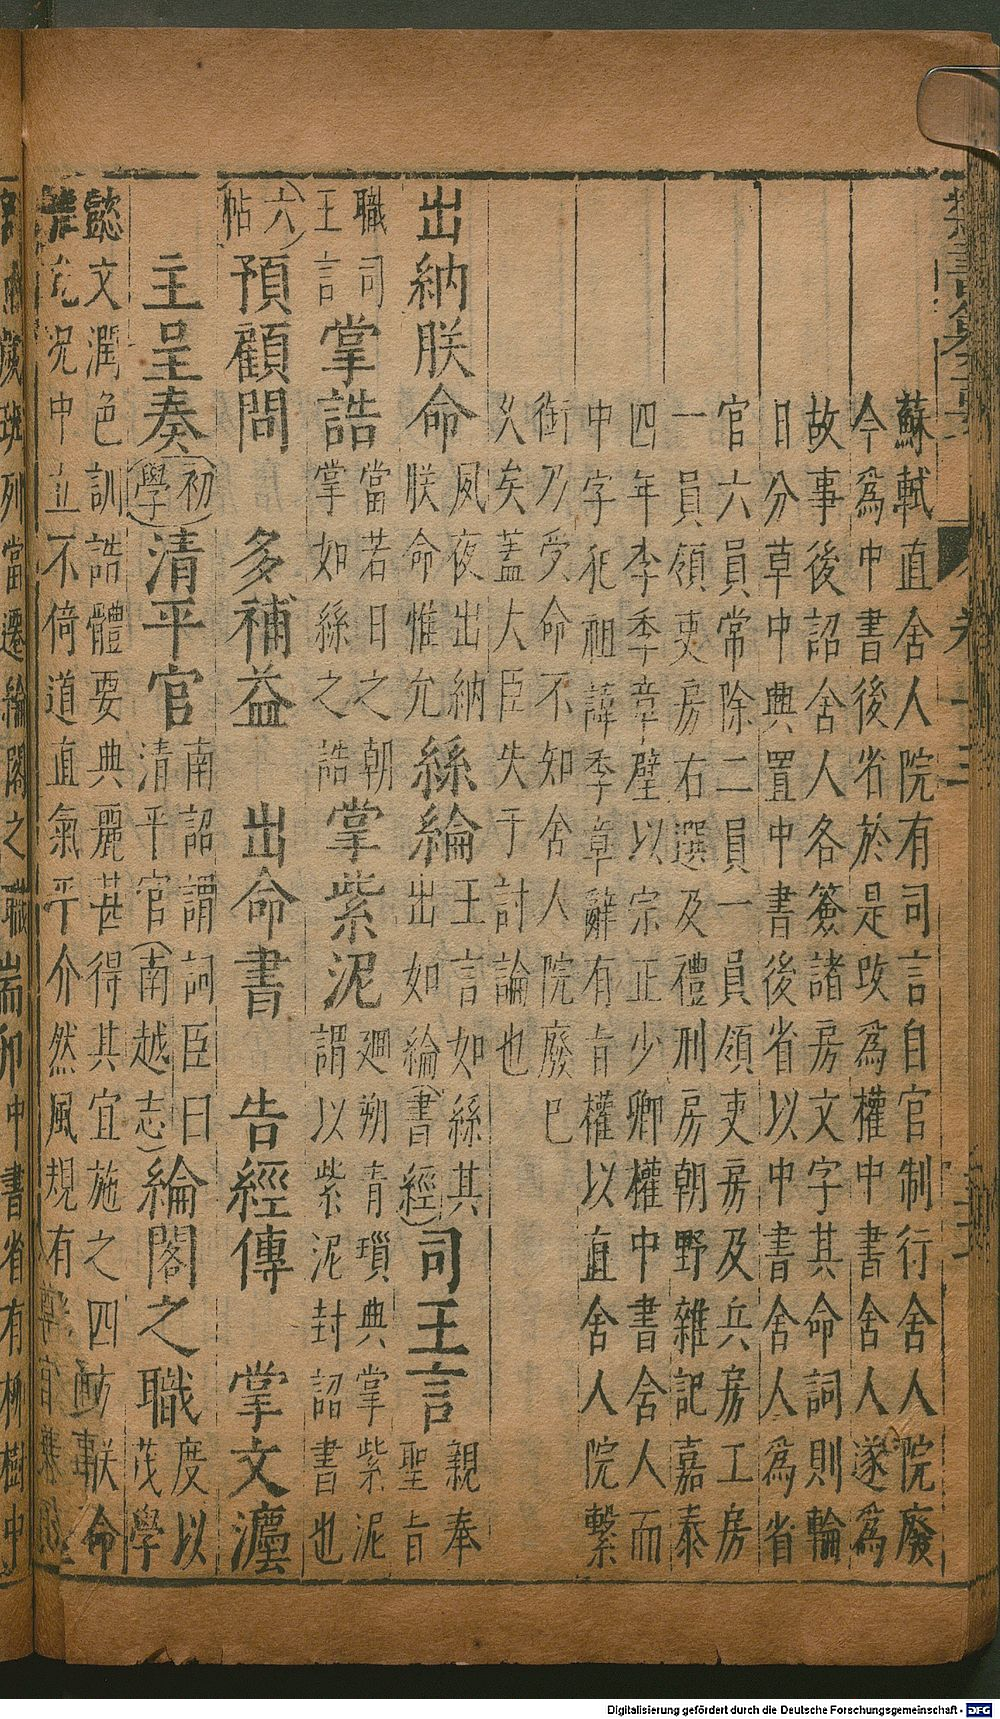 蘇軾直舍人院有司言自官制行舍人院廢
今爲中書後省於是改爲權中書舍人遂爲
故事後詔舍人各簽諸房文字其命詞則輪
日分草中興置中書後省以中書舍人爲省
官六員常除二員一員領吏房及兵房工房
一員領吏房右選及禮刑房朝野雜記嘉泰
四年李季章壁以宗正少卿權中書舍人而
中字犯祖諱季章辭有旨權以直舍人院繫
銜乃受命不知舍人院廢已
久矣蓋大臣失于討論也
出納朕命 夙夜出納朕命惟允 絲綸 王言如絲其出如綸(書經) 司王言 親奉聖旨
職司王言 掌誥 當若日之朝掌如絲之誥 掌紫泥 廻朔青瑣典掌紫泥謂以紫泥封詔書也
(六帖) 預顧問 多補益 出命書 告經傳 掌文灋
主呈奏 (初學) 清平官 南詔謂詞臣曰清平官(南越志) 綸閣之職 度以茂學
懿文潤色訓誥體要典麗甚得其宜施之四方朕命
況中立不倚道直氣平介然風規有
班列當遷綸閣之職耑卯中書省有柳樹中
Digitalisierung gefördert durch die Deutsche Forschungsgemeinschaft - DFG